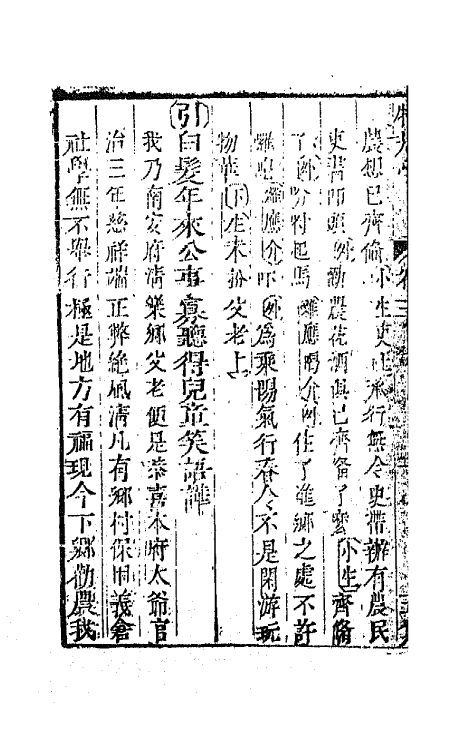 農想已齊備小生吏上承行無令史帶辦有農民
吏書叩頭外勸農花酒俱已齊备了麽小生齊備
了外分付起馬雜應喝介外住了進鄉之處不許
囉唣雜應介吓外爲乘陽氣行春令不是閑游玩
物華下生末扮父老上
引白髮年來公事寡聽得兒童笑語譁
我乃南安府清樂鄉父老便是恭喜本府太爺官
治三年慈祥端正弊絕風清凡有鄉村保甲義倉
社學無不舉行極是地方有福現今下鄉勸農我